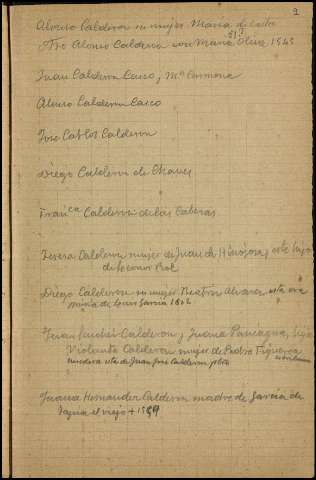 2
Alonso Calderon su mujer Maria de
Otro Alonso Calderon con Maria Oliva 1545
Juan Calderon Casco, Mª Carmona
Alonso Calderon Casco
Jose Carlos Calderon
Diego Calderon de Chaves
Franca Calderon de las Caberas
Teresa Calderon mujer de Juan de Hinojosa, este hijo
de
Diego Calderon su mujer Beatriz Alvarez esta era
de Luis Garcia 1602
Juan Sanchez Calderon y Juana Paniagua, hija
Violante Calderon mujer de Pedro Figueroa
de Juan Jose Calderon
Juana Hernandez Calderon madre de Garcia de
Tapia el viejo +